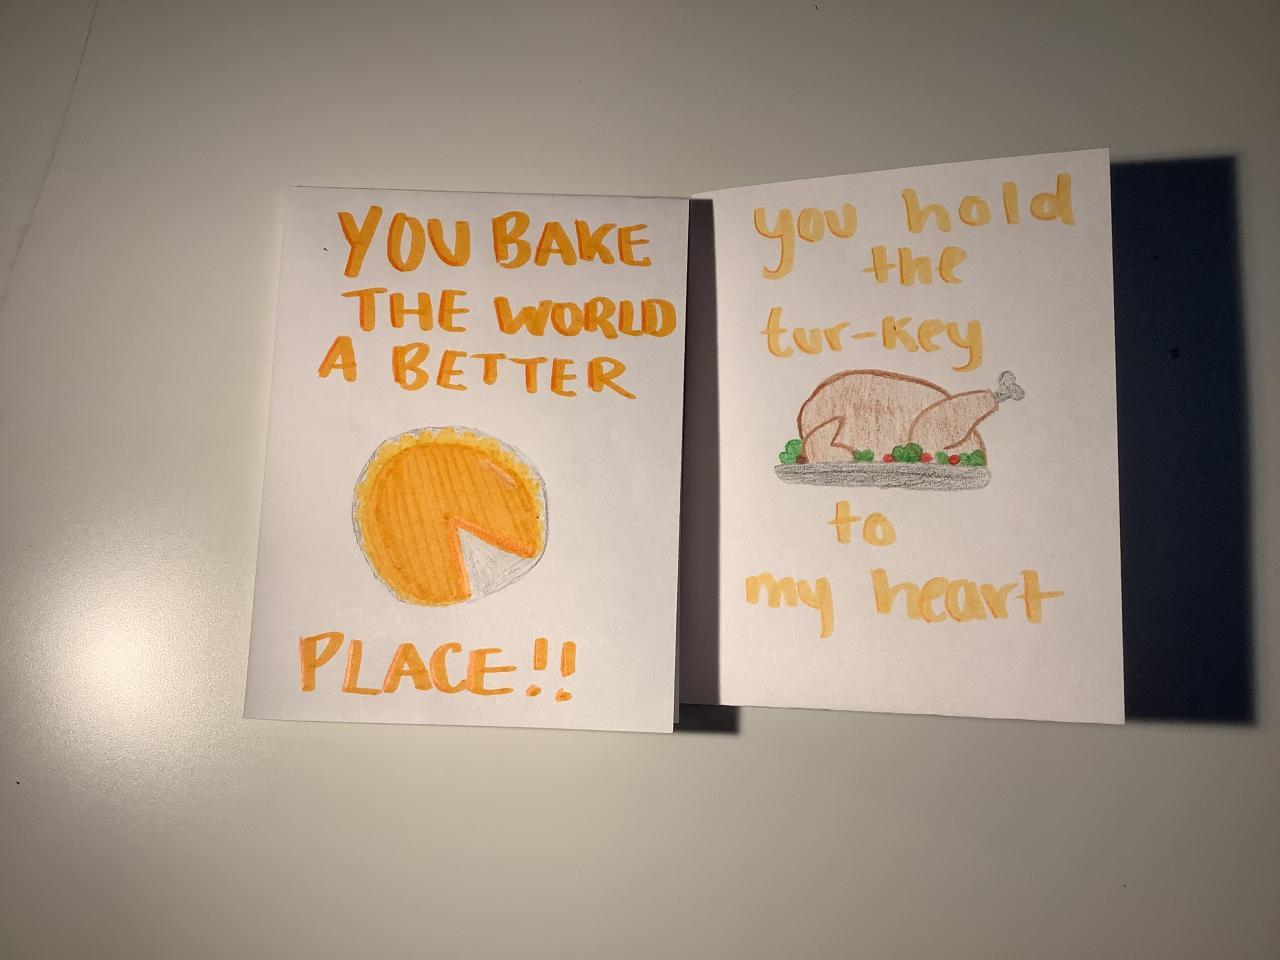 YOU BAKE
THE WORLD
A BETTER
PLACE!!
you hold
the
tur-key
to
my heart